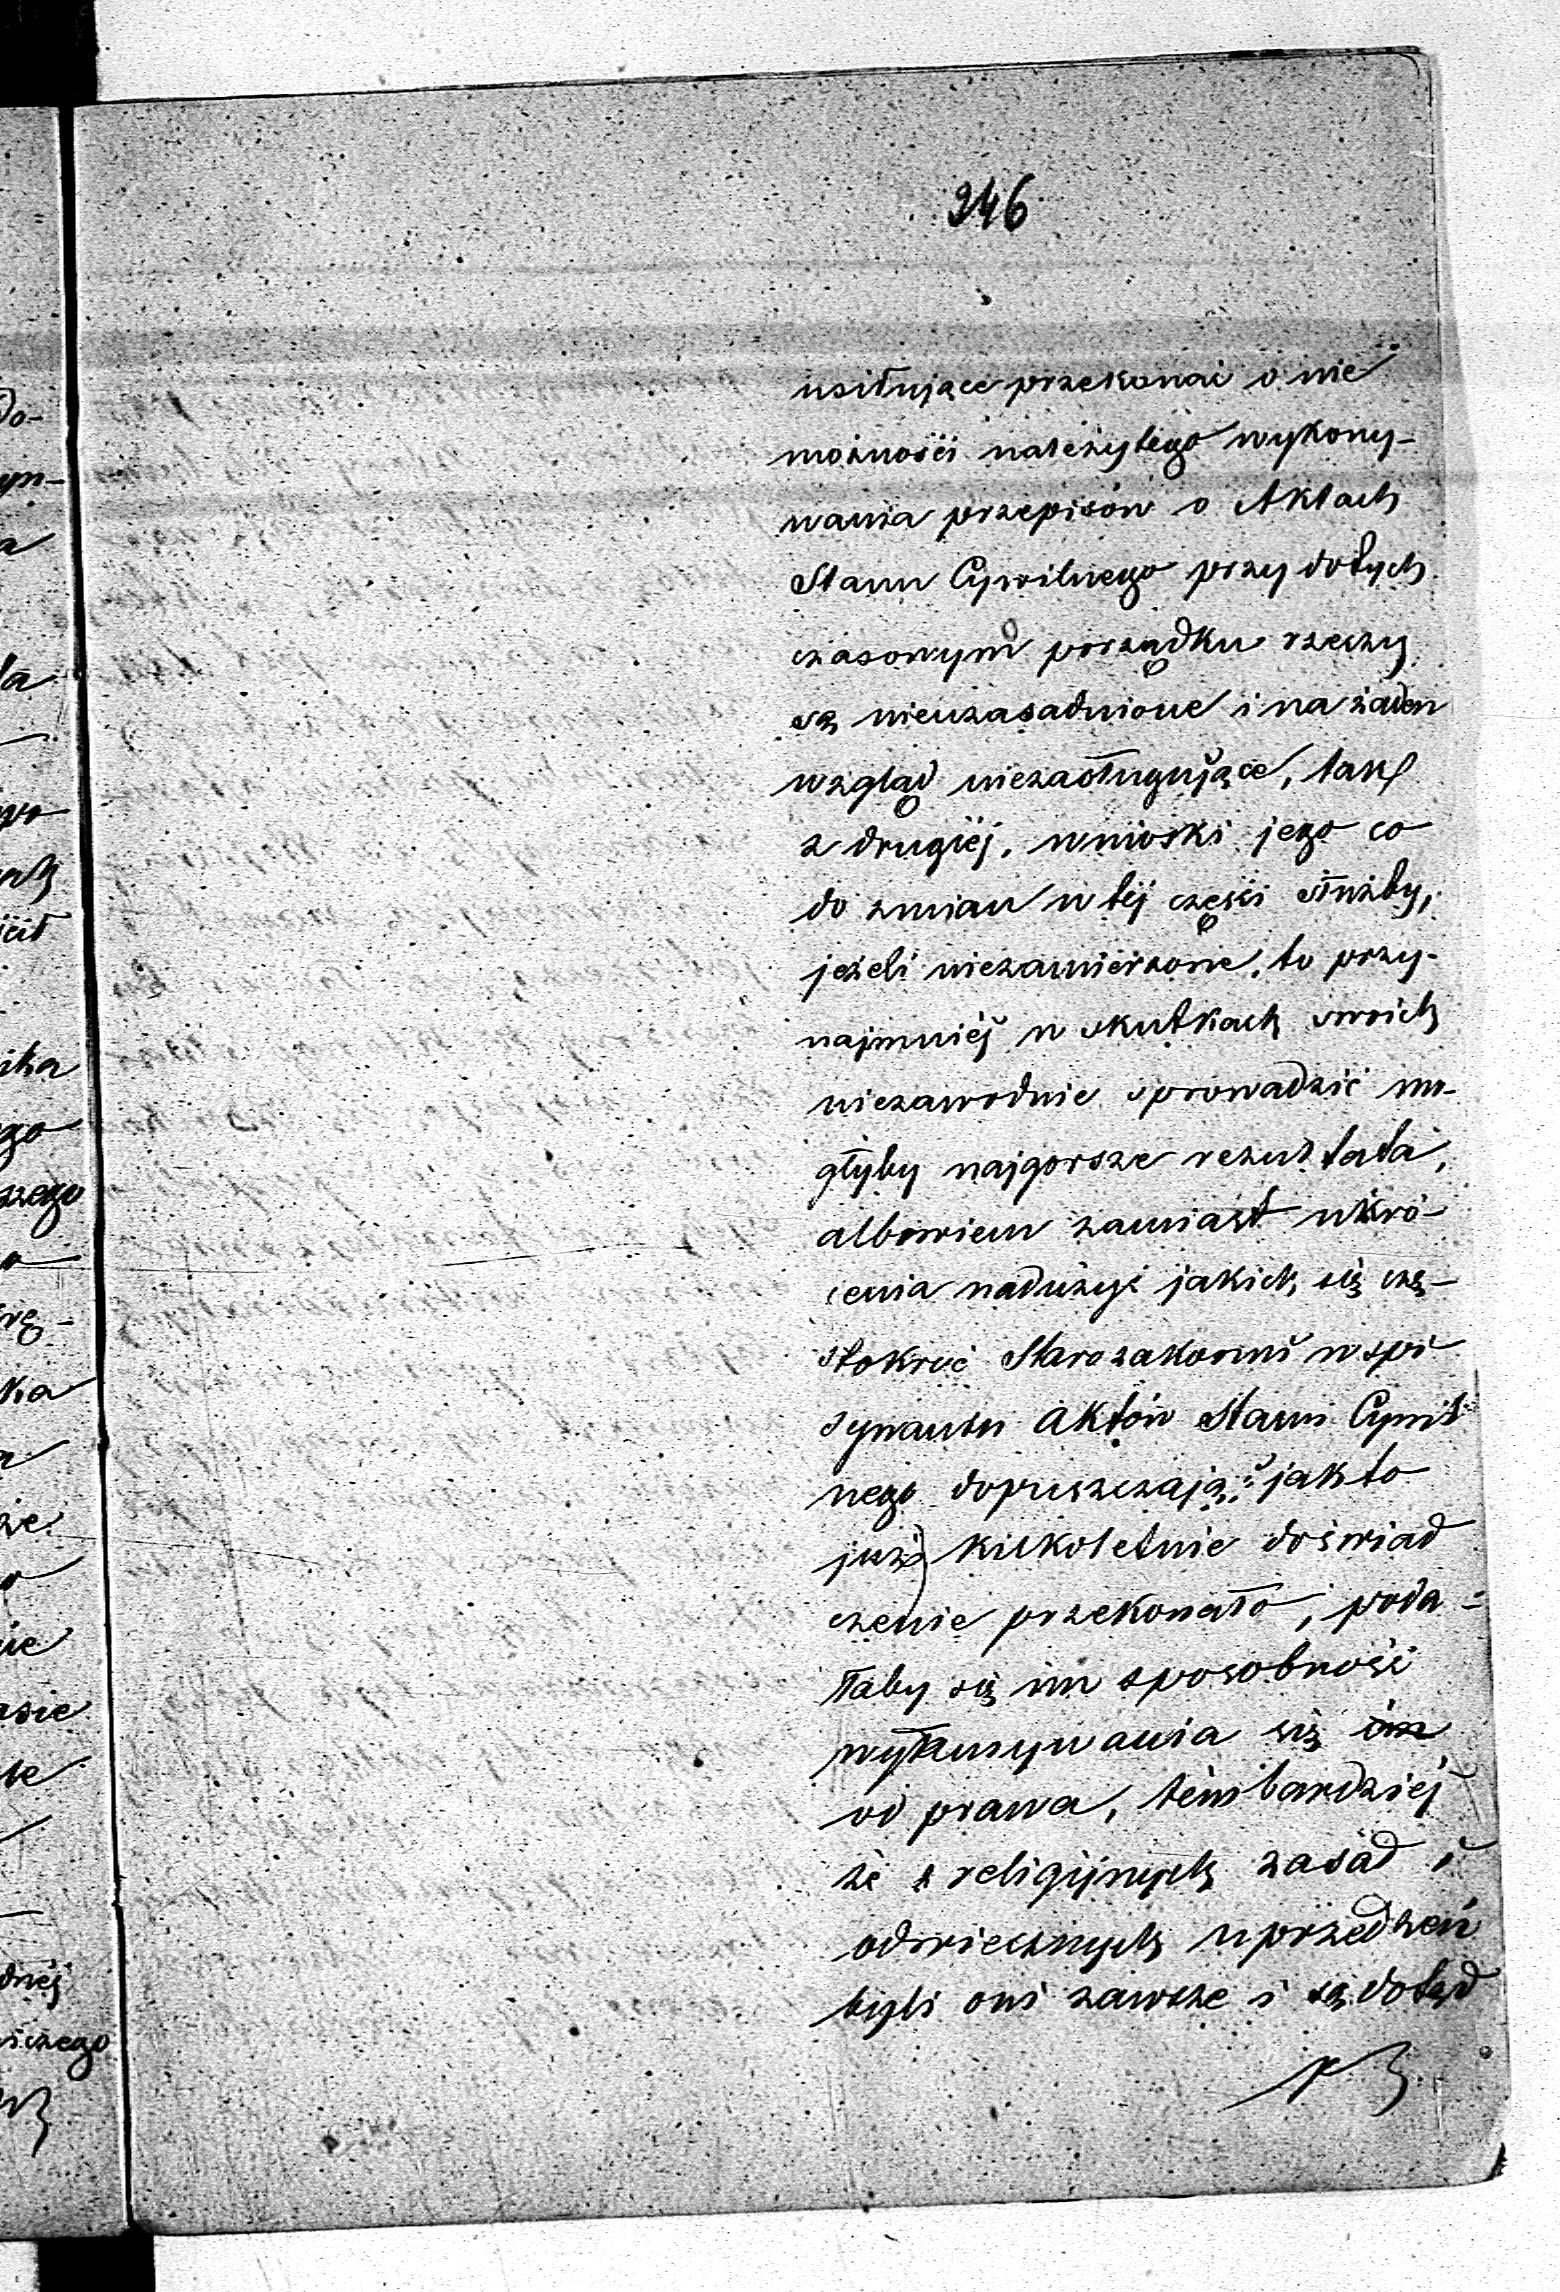 246
usiłujące przekonać o nie
możności należytego wykony-
wania przepisów o Aktach
Stanu Cywilnego przy dotych
czasowym porządku rzeczy
są nieuzasadnione i na żaden
wzgląd niezasługujące, tak
z drugiéj, wnioski jego co
do zmian w téj części służby,
jeżeli niezamierzone, to przy-
najmniéj w skutkach swoich
niezawodnie sprowadzić mo-
głyby najgorsze rezultata,
albowiem zamiast ukró-
cenia nadużyć jakich się czę-
stokroć Starozakonni w spi
sywaniu Aktów Stanu Cywil
nego dopuszczają: jak to
już kilkoletnie doświad
czenie przekonało, poda-
łaby się im sposobność
wyłamywania się im
od prawa, tém bardziéj
że z religijnych zasad i
odwiecznych uprzedzeń
byli oni zawsze i są dotąd
do-
yn-
a
la
wo
ych
ika
go
szego
ka
że
nie
asie
dnéj
iczego